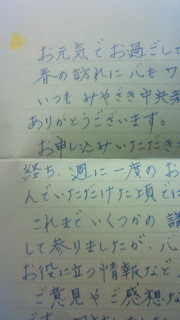 お元気でお過ごして
春の訪れに心もワ
いつもみやざき中央
ありがとうございます。
お申し込みいただき
経ち、週に一度のお
んでいただけた頃で
これまでいくつかの
して参りましたが、心
お役に立つ情報など、
ご意見やご感想な